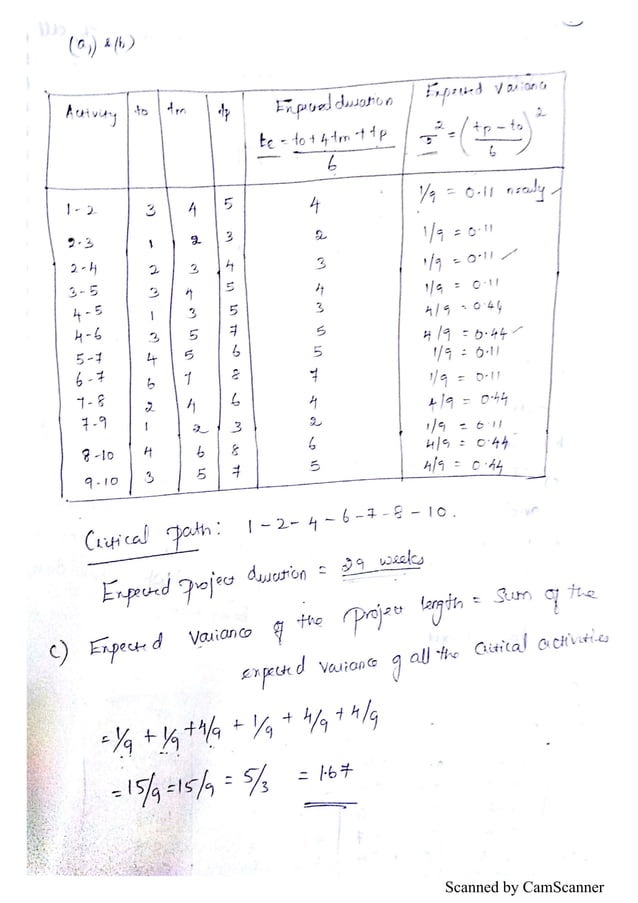 (a) & (b)
Activity to tm tp Expected duration Expected Variance
te = to + 4tm + tp / 6 σ² = (tp - to / 6)²
1-2 3 4 5 4 1/9 = 0.11 nearly
2-3 1 2 3 2 1/9 = 0.11
2-4 2 3 4 3 1/9 = 0.11
3-5 3 4 5 4 1/9 = 0.11
4-5 1 3 5 3 4/9 = 0.44
4-6 3 5 7 5 4/9 = 0.44
5-7 4 5 6 5 1/9 = 0.11
6-7 6 7 8 7 1/9 = 0.11
7-8 2 4 6 4 4/9 = 0.44
7-9 1 2 3 2 1/9 = 0.11
8-10 4 6 8 6 4/9 = 0.44
9-10 3 5 7 5 4/9 = 0.44
Critical path: 1-2-4-6-7-8-10.
Expected project duration = 29 weeks
c) Expected Variance of the project length = Sum of the
expected variance of all the critical activities
= 1/9 + 1/9 + 4/9 + 1/9 + 4/9 + 4/9
= 15/9 = 15/9 = 5/3 = 1.67
Scanned by CamScanner